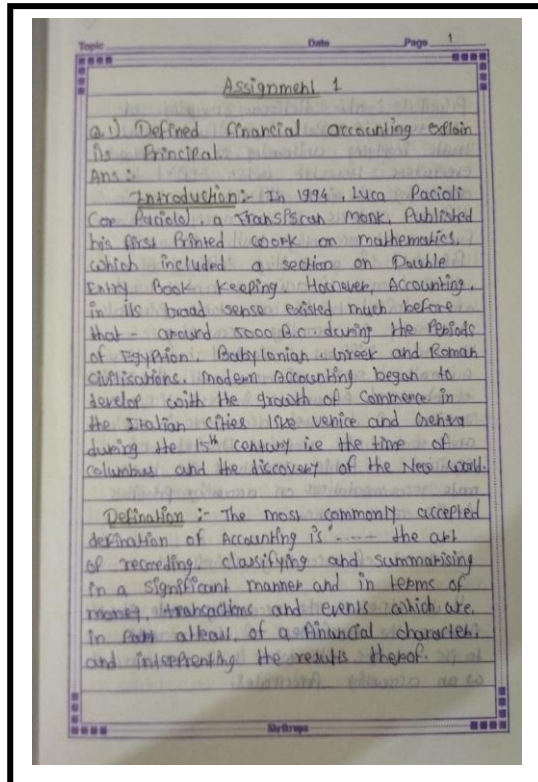 Topic Date Page 1
Assignment 1
Q.1) Defined financial accounting explain
its Principal.
Ans :
Introduction :- In 1994, Luca Pacioli
(or Paciolo), a Fransiscan monk, Published
his first Printed work on mathematics,
which included a section on Double
Entry Book Keeping. However, Accounting,
in its broad sense existed much before
that - around 5000 B.C during the Periods
of Egyption, Babylonian Greek and Roman
Civilisations. Modern Accounting began to
develop with the growth of Commerce in
the Italian Cities like Venice and
during the 15th century i.e the time of
Columbus and the discovery of the New World.
Defination :- The most commonly accepted
defination of Accounting is "---- the art
of recording, classifying and summarising
in a significant manner and in terms of
money, transactions and events which are,
in Part atleast, of a financial character,
and the results thereof.